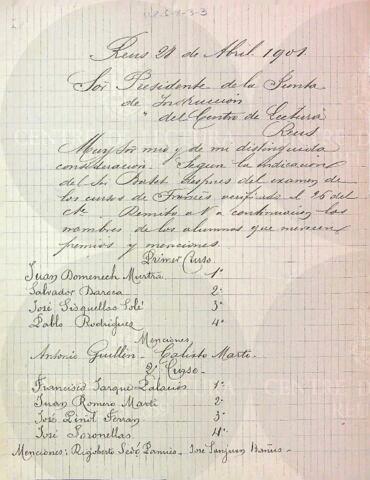 Reus 21 de Abril 1901.
Sor Presidente de la Junta
de Instruccion
" del Centro de Lectura
Reus
Muy Sor mio y de mi distinguida
consideracion. Segun la indicacion
del Sor Batet despues del examen de
los cursos de Francés verificado el 15 del
Cte Remito a V a continuacion los
nombres de los alumnos que merecen
premios y menciones.
Primer Curso
Juan Domenech Murtra 1º
Salvador Baroca 2º
José Sisquellas Solé 3º
Pablo Rodriguez 4º
Menciones
Antonio Guillén - Calisto Marti -
2º Curso -
Francisco Sarque Palacios 1º
Juan Romero Marti 2º
José Pinol Ferran 3º
José Saronellas 4º
Menciones: Rigoberto Sedó Pamies - Jose Sanjuan